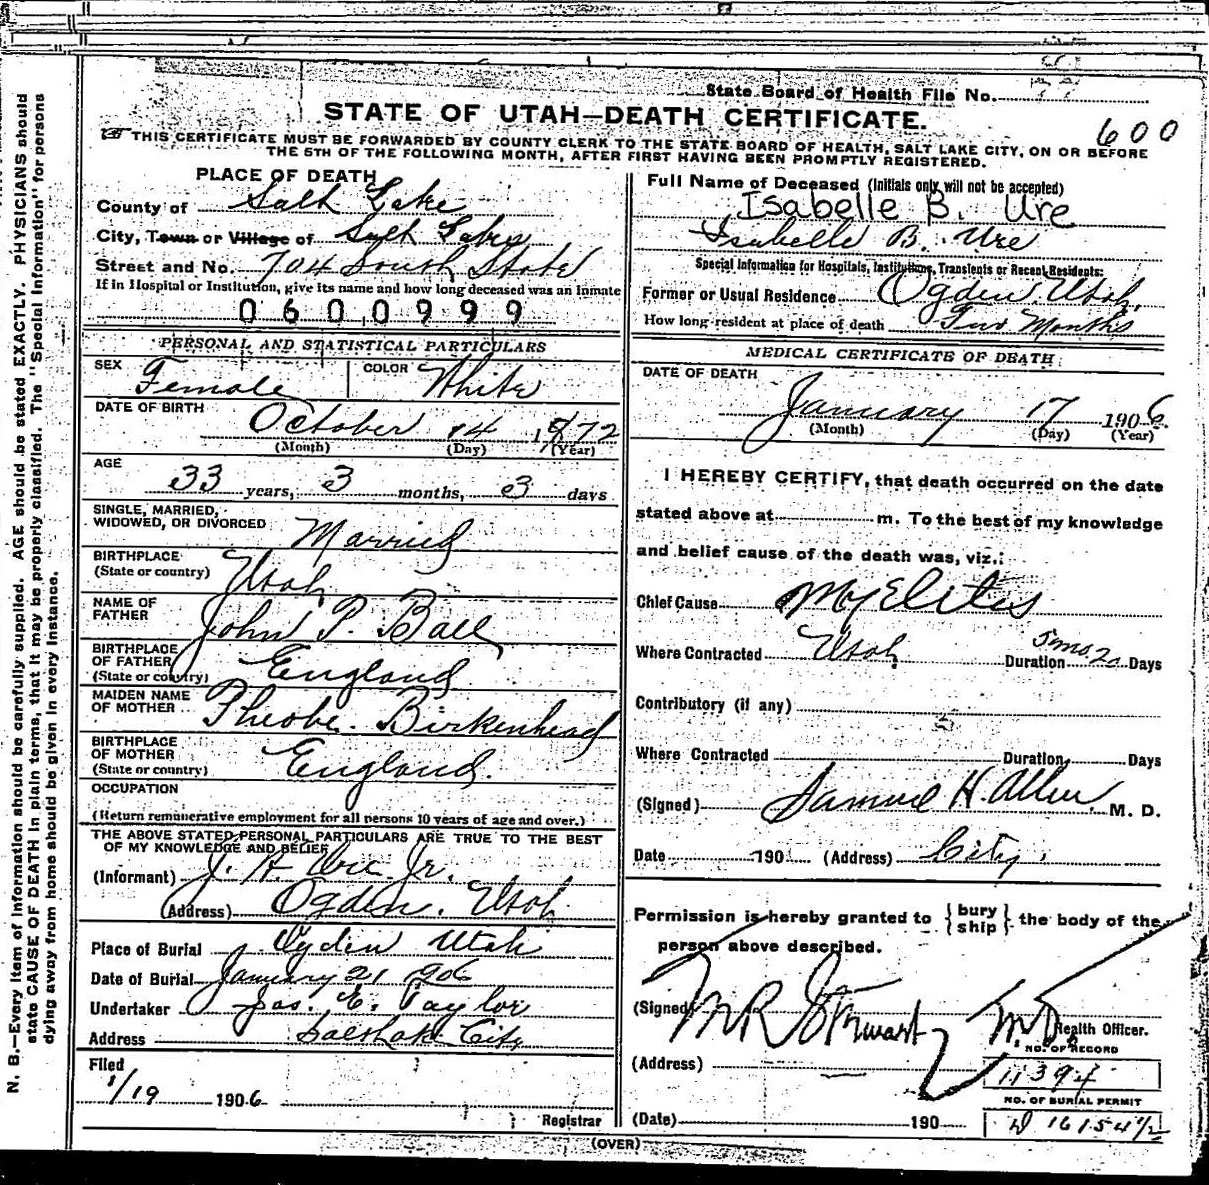 State Board of Health File No.
STATE OF UTAH—DEATH CERTIFICATE.
600
THIS CERTIFICATE MUST BE FORWARDED BY COUNTY CLERK TO THE STATE BOARD OF HEALTH, SALT LAKE CITY, ON OR BEFORE
THE 5TH OF THE FOLLOWING MONTH, AFTER FIRST HAVING BEEN PROMPTLY REGISTERED.
PLACE OF DEATH
County of Salt Lake
City, Town or Village of Salt Lake
Street and No. 704 South State
If in Hospital or Institution, give its name and how long deceased was an inmate
0600999
PERSONAL AND STATISTICAL PARTICULARS
SEX Female COLOR White
DATE OF BIRTH October 14 1872
(Month) (Day) (Year)
AGE
33 years, 3 months, 3 days
SINGLE, MARRIED,
WIDOWED, OR DIVORCED Married
BIRTHPLACE
(State or country) Utah
NAME OF
FATHER John P. Ball
BIRTHPLACE
OF FATHER
(State or country) England
MAIDEN NAME
OF MOTHER Pheobe Birkenhead
BIRTHPLACE
OF MOTHER
(State or country) England.
OCCUPATION
(Return remunerative employment for all persons 10 years of age and over.)
THE ABOVE STATED PERSONAL PARTICULARS ARE TRUE TO THE BEST
OF MY KNOWLEDGE AND BELIEF
(Informant) J. H. Ure Jr.
(Address) Ogden, Utah
Place of Burial Ogden Utah
Date of Burial January 21 1906
Undertaker Jos. E. Taylor
Address Salt Lake City
Filed
1/19 1906
Registrar
Full Name of Deceased (Initials only will not be accepted)
Isabelle B. Ure
Isabelle B. Ure
Special Information for Hospitals, Institutions, Transients or Recent Residents:
Former or Usual Residence Ogden Utah
How long resident at place of death Two Months
MEDICAL CERTIFICATE OF DEATH
DATE OF DEATH
January 17 1906
(Month) (Day) (Year)
I HEREBY CERTIFY, that death occurred on the date
stated above at m. To the best of my knowledge
and belief cause of the death was, viz.:
Chief Cause Myelites
Where Contracted Utah Duration 5 mo 20 Days
Contributory (if any)
Where Contracted Duration Days
(Signed) Samuel H. Allen, M. D.
Date 190 (Address) City.
Permission is hereby granted to { bury ship } the body of the
person above described.
(Signed) M R Stewart M.D. Health Officer.
NO. OF RECORD
(Address) 11394
NO. OF BURIAL PERMIT
(Date) 190 D 16154 1/2
(OVER)
N. B.—Every item of information should be carefully supplied. AGE should be stated EXACTLY. PHYSICIANS should
state CAUSE OF DEATH in plain terms, that it may be properly classified. The "Special Information" for persons
dying away from home should be given in every instance.